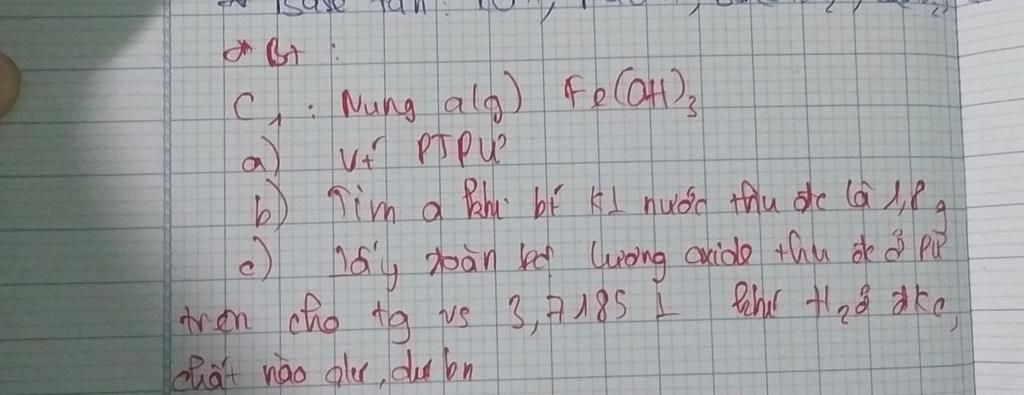 * Bt :
C1 : Nung a(g) Fe(OH)3
a) Vt PTPU?
b) Tìm a khi bt KL nước thu đc là 1,8g
c) Lấy toàn bộ lương oxide thu đc ở PU
trên cho tg vs 3,7185 L khí H2 ở đkc,
chất nào dư, dư bn